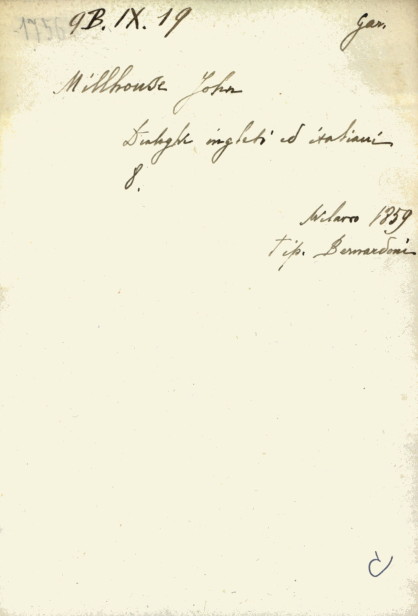 9B. IX. 19 Gar.
Millhouse John
Dialoghi inglesi ed italiani
8.
Milano 1859
Tip. Bernardoni